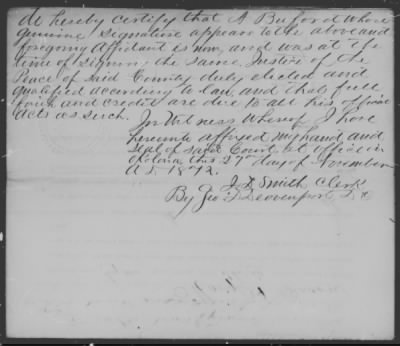 do hereby certify that A Buford whose
genuine Signature appears to the above and
foregoing affidavit is now, and was at the
time of signing the same, Justice of the
Peace of said County duly elected and
qualified according to law, and that full
faith and credit are due to all his official
acts as such.
In Witness Whereof I have
hereunto affixed my hand and
seal of said Court at office in
Okolona this 27th day of November
A.D. 1872.
J D Smith Clerk
By Geo D Devenport D.C